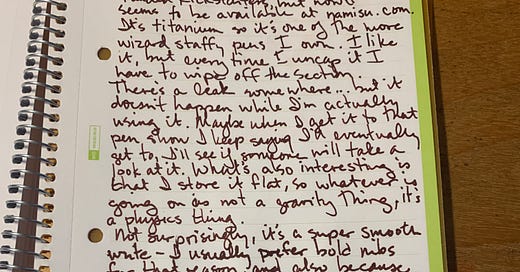 Kickstarters, but now it
seems to be available at namisu.com.
It's titanium so it's one of the more
wizard staffy pens I own. I like
it, but every time I uncap it I
have to wipe off the section.
There's a leak somewhere... but it
doesn't happen while I'm actually
using it. Maybe when I get it to that
pen show I keep saying I'd eventually
get to, I'll see if someone will take a
look at it. What's also interesting is
that I store it flat, so whatever is
going on is not a gravity thing, it's
a physics thing.
Not surprisingly, it's a super smooth
write - I usually prefer bold nibs
for that reason and also because